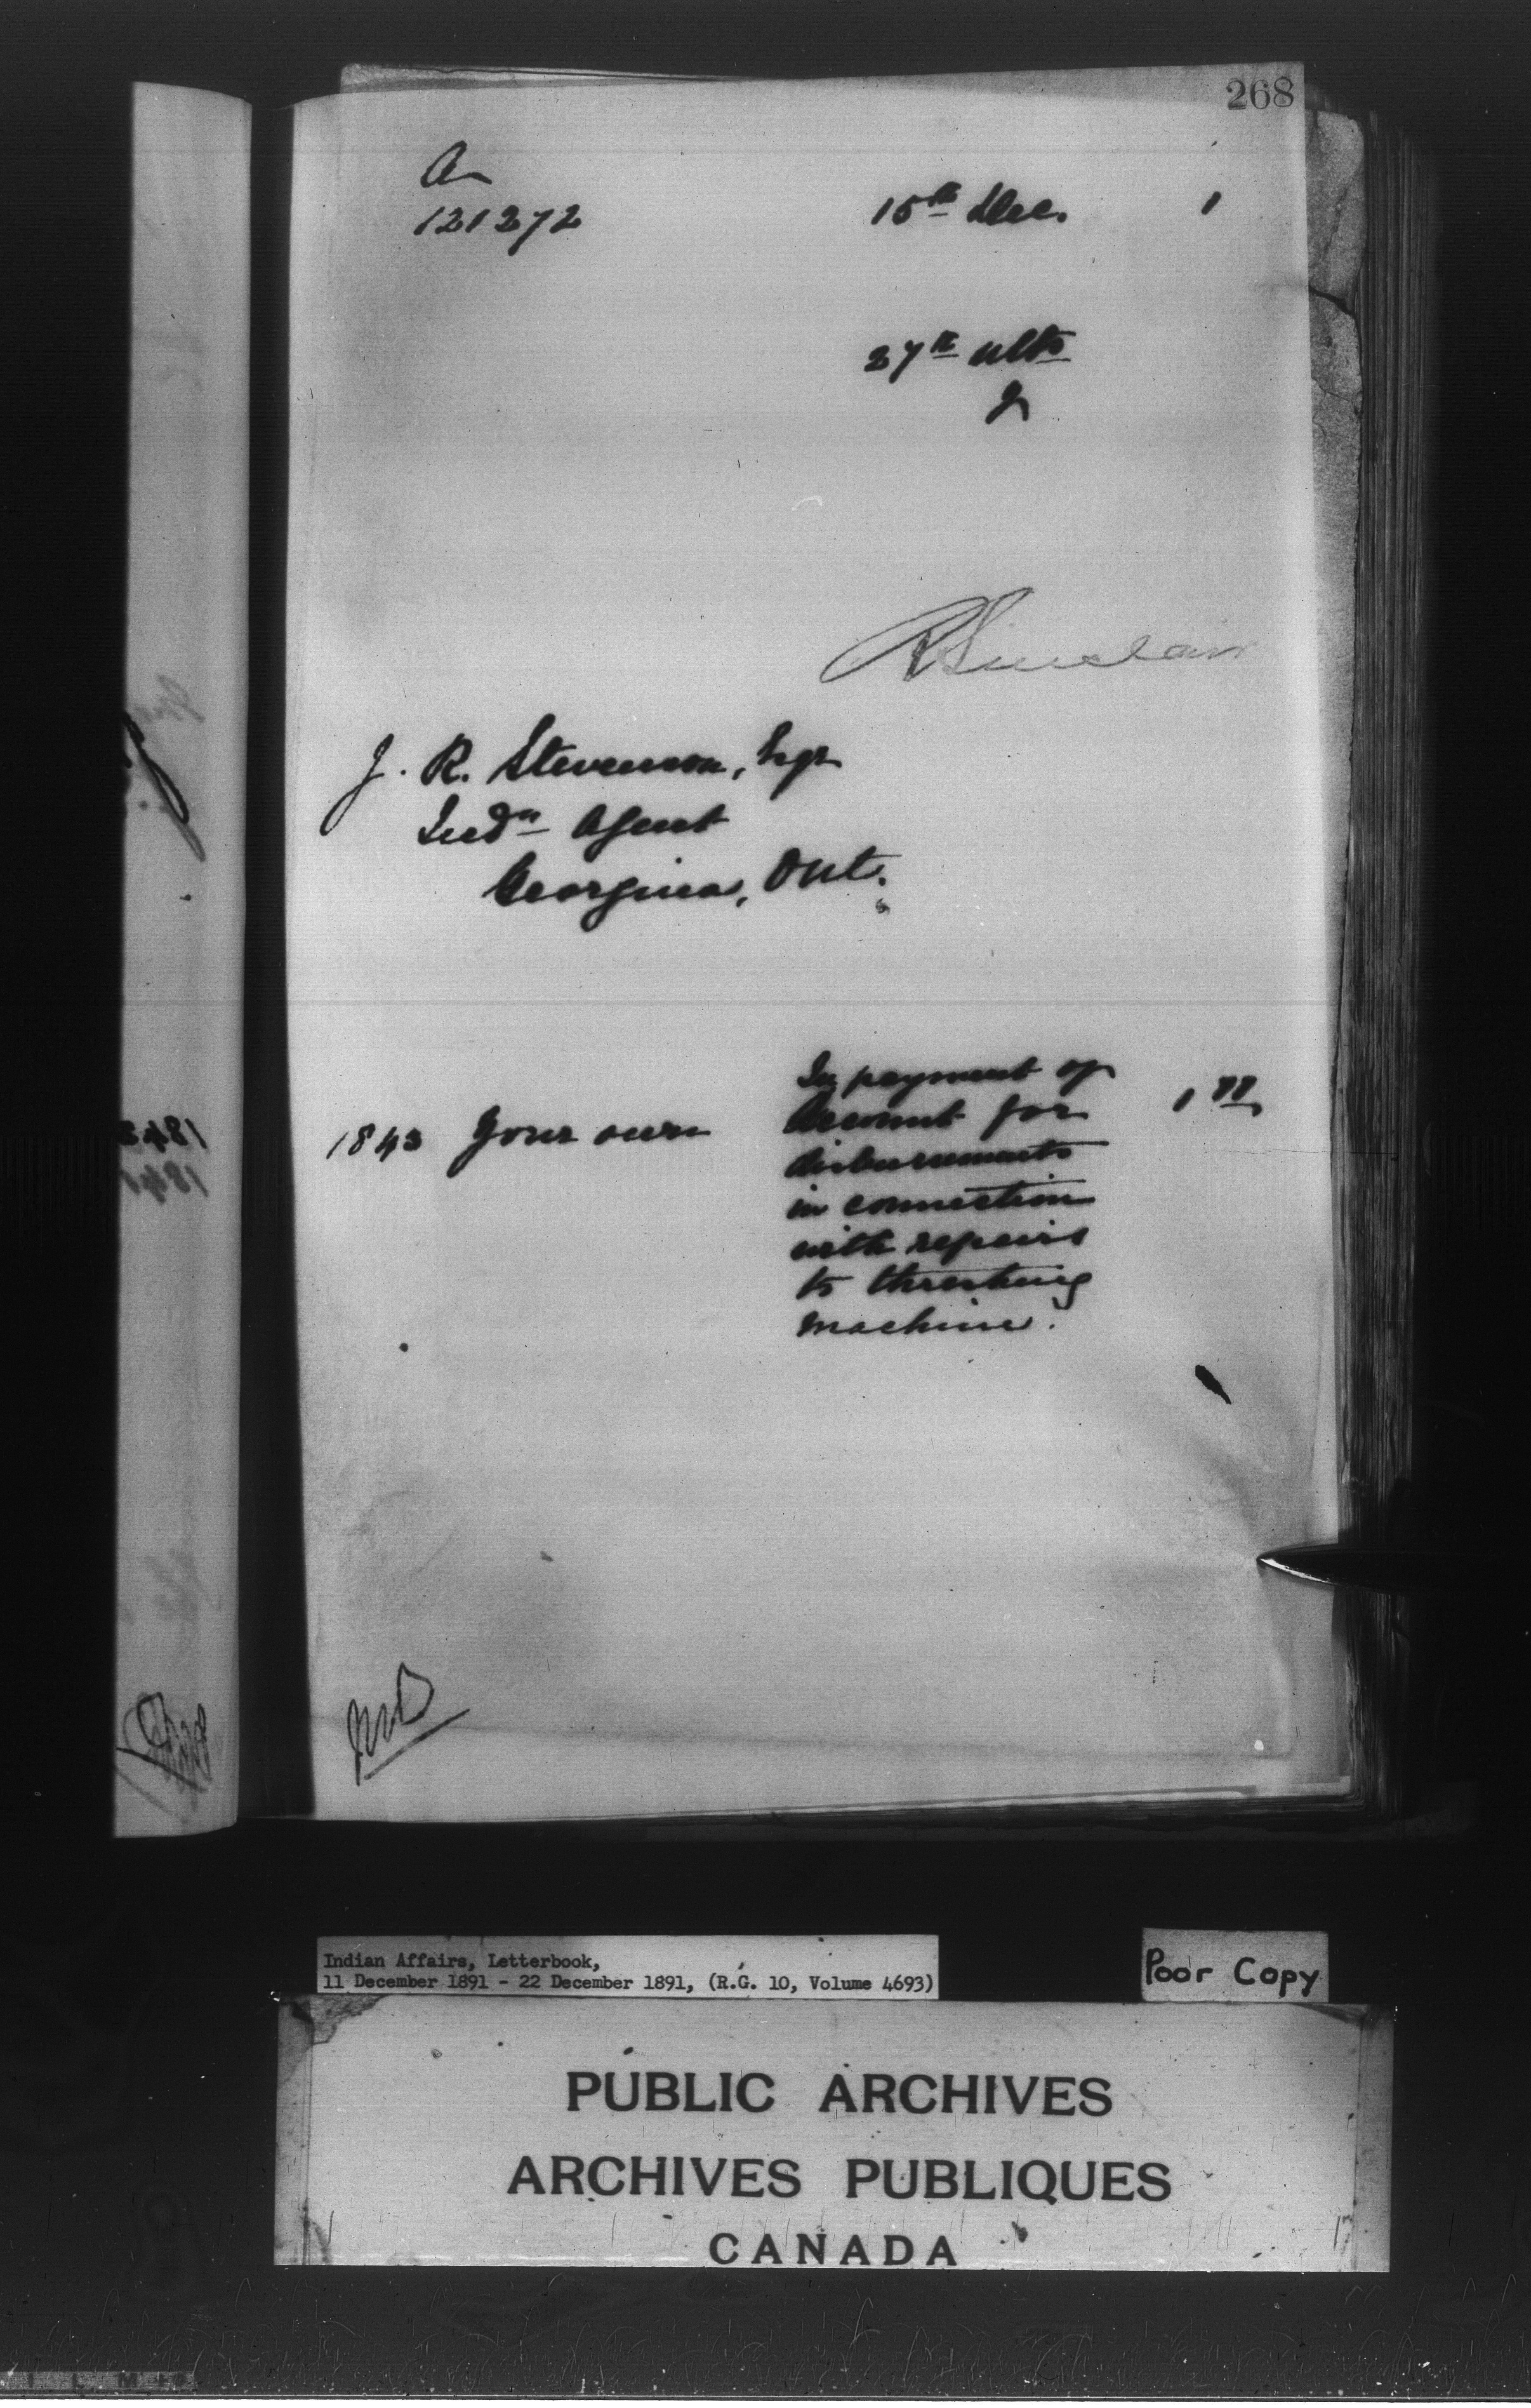 268
A
121272
15th Dec. 1
27th ulto
R Sinclair
J. R. Stevenson, Esqr
Indn Agent
Georgina, Ont.
In payment of
1843 Your own account for 1
disbursements
in connection
with repairs
to threshing
machine.
Indian Affairs, Letterbook,
11 December 1891 - 22 December 1891, (R.G. 10, Volume 4693)
Poor Copy
PUBLIC ARCHIVES
ARCHIVES PUBLIQUES
CANADA